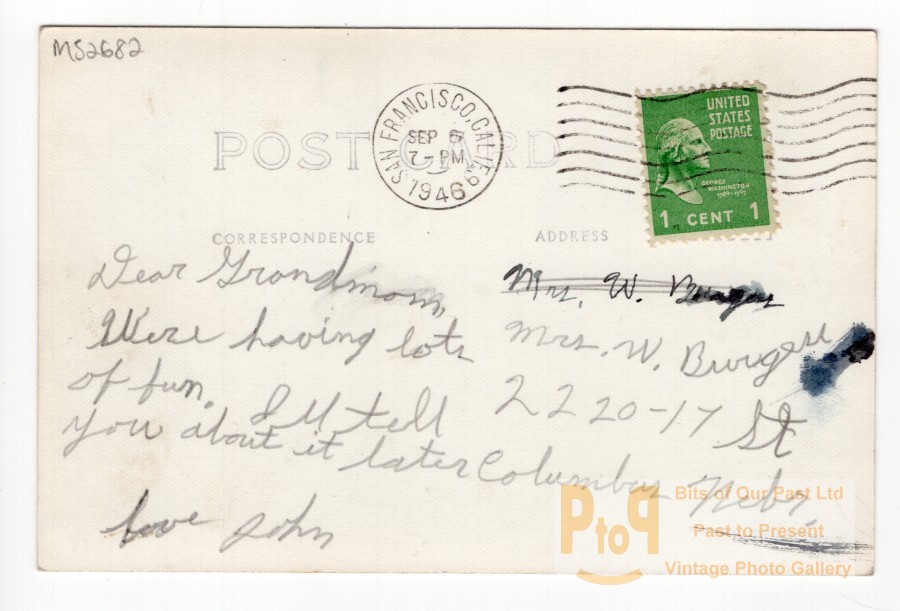 MS2682
POST CARD
SAN FRANCISCO, CALIF.
SEP 6
7-PM
1946
UNITED
STATES
POSTAGE
GEORGE
WASHINGTON
1 CENT 1
CORRESPONDENCE
ADDRESS
Dear Grandmom,
Were having lots
of fun. I'll tell
you about it later
love John
Mrs. W. Burgess
Mrs. W. Burgess
2220-17 St
Columbus Nebr.
PtoP
Bits of Our Past Ltd
Past to Present
Vintage Photo Gallery